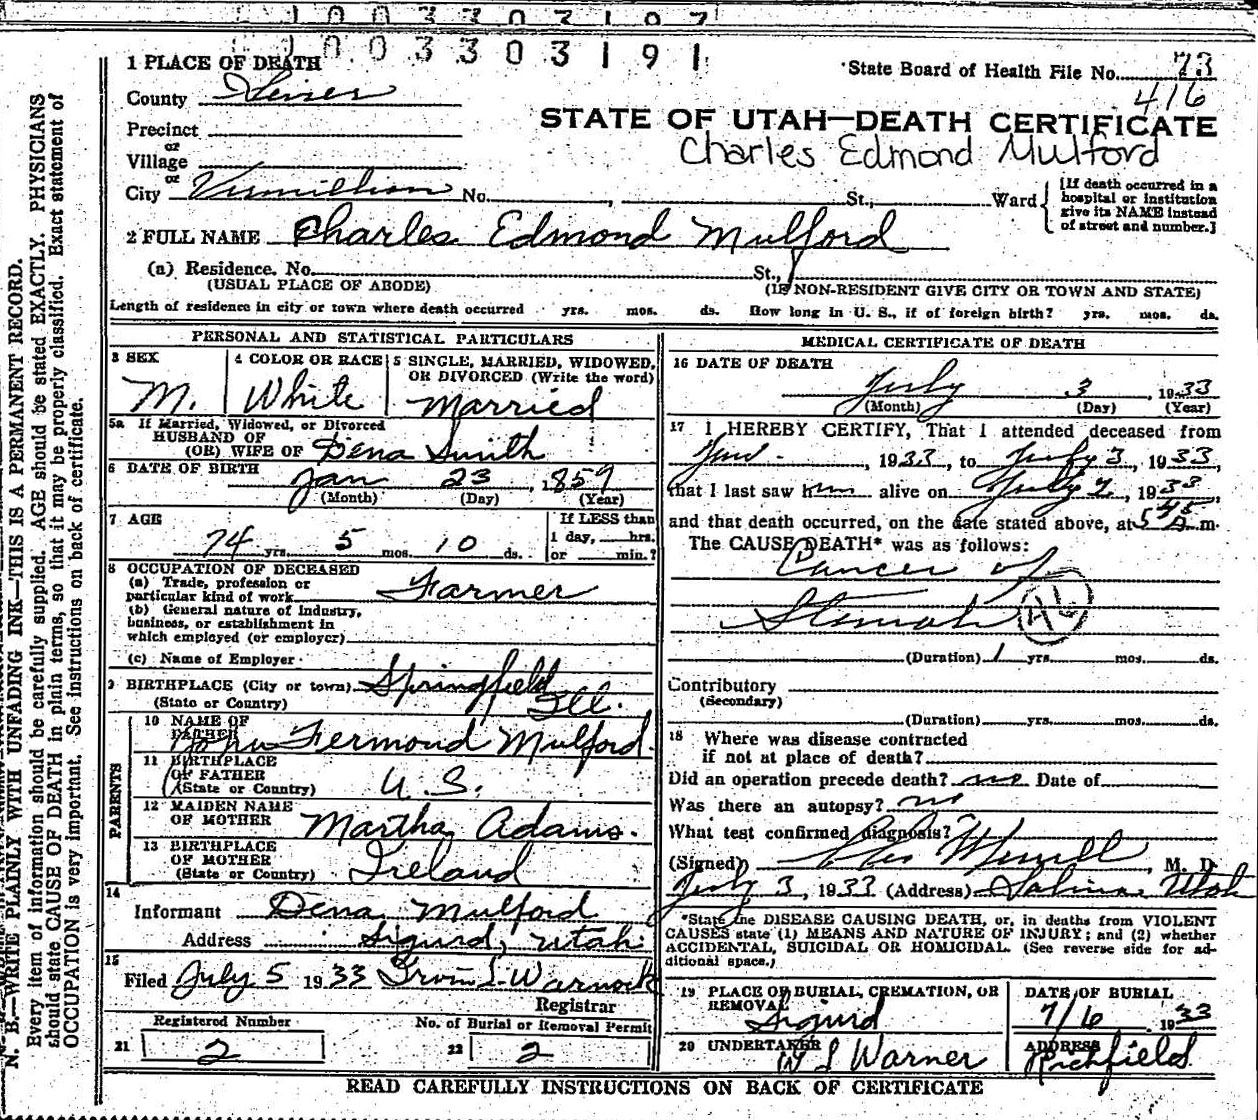 1003303191
1 PLACE OF DEATH
State Board of Health File No. 73
416
County Sevier
Precinct
or
Village
or
City Vermillion No. , St., Ward
[If death occurred in a hospital or institution give its NAME instead of street and number.]
STATE OF UTAH—DEATH CERTIFICATE
Charles Edmond Mulford
2 FULL NAME Charles Edmond Mulford
(a) Residence. No. St.,
(USUAL PLACE OF ABODE) (IF NON-RESIDENT GIVE CITY OR TOWN AND STATE)
Length of residence in city or town where death occurred yrs. mos. ds. How long in U. S., if of foreign birth? yrs. mos. ds.
PERSONAL AND STATISTICAL PARTICULARS
3 SEX
M.
4 COLOR OR RACE
White
5 SINGLE, MARRIED, WIDOWED,
OR DIVORCED (Write the word)
Married
5a If Married, Widowed, or Divorced
HUSBAND OF
(OR) WIFE OF Dena Smith
6 DATE OF BIRTH
Jan 23, 1859
(Month) (Day) (Year)
7 AGE
74 yrs. 5 mos. 10 ds.
If LESS than
1 day, hrs.
or min.?
8 OCCUPATION OF DECEASED
(a) Trade, profession or
particular kind of work Farmer
(b) General nature of industry,
business, or establishment in
which employed (or employer)
(c) Name of Employer
9 BIRTHPLACE (City or town) Springfield
(State or Country) Ill.
PARENTS
10 NAME OF
FATHER
John Fermond Mulford.
11 BIRTHPLACE
OF FATHER
(State or Country) U.S.
12 MAIDEN NAME
OF MOTHER Martha Adams.
13 BIRTHPLACE
OF MOTHER
(State or Country) Ireland
14
Informant Dena Mulford
Address Sigurd, Utah
15
Filed July 5 1933 Irvin L. Warnock
Registrar
Registered Number
21 2
No. of Burial or Removal Permit
22 2
MEDICAL CERTIFICATE OF DEATH
16 DATE OF DEATH
July 3, 1933
(Month) (Day) (Year)
17 I HEREBY CERTIFY, That I attended deceased from
Jan., 1933, to July 3, 1933,
that I last saw him alive on July 2, 1933,
and that death occurred, on the date stated above, at 5 45 A. m.
The CAUSE DEATH* was as follows:
Cancer of
Stomach AL
(Duration) 1 yrs. mos. ds.
Contributory
(Secondary)
(Duration) yrs. mos. ds.
18 Where was disease contracted
if not at place of death?
Did an operation precede death? no Date of
Was there an autopsy? no
What test confirmed diagnosis?
(Signed) Merrill, M. D.
July 3, 1933 (Address) Salina Utah
*State the DISEASE CAUSING DEATH, or, in deaths from VIOLENT
CAUSES state (1) MEANS AND NATURE OF INJURY; and (2) whether
ACCIDENTAL, SUICIDAL OR HOMICIDAL. (See reverse side for ad-
ditional space.)
19 PLACE OF BURIAL, CREMATION, OR
REMOVAL
Sigurd
DATE OF BURIAL
7/6, 1933
20 UNDERTAKER
W L Warner
ADDRESS
Richfield
READ CAREFULLY INSTRUCTIONS ON BACK OF CERTIFICATE
N. B.—WRITE PLAINLY WITH UNFADING INK—THIS IS A PERMANENT RECORD.
Every item of information should be carefully supplied. AGE should be stated EXACTLY. PHYSICIANS
should state CAUSE OF DEATH in plain terms, so that it may be properly classified. Exact statement of
OCCUPATION is very important. See instructions on back of certificate.